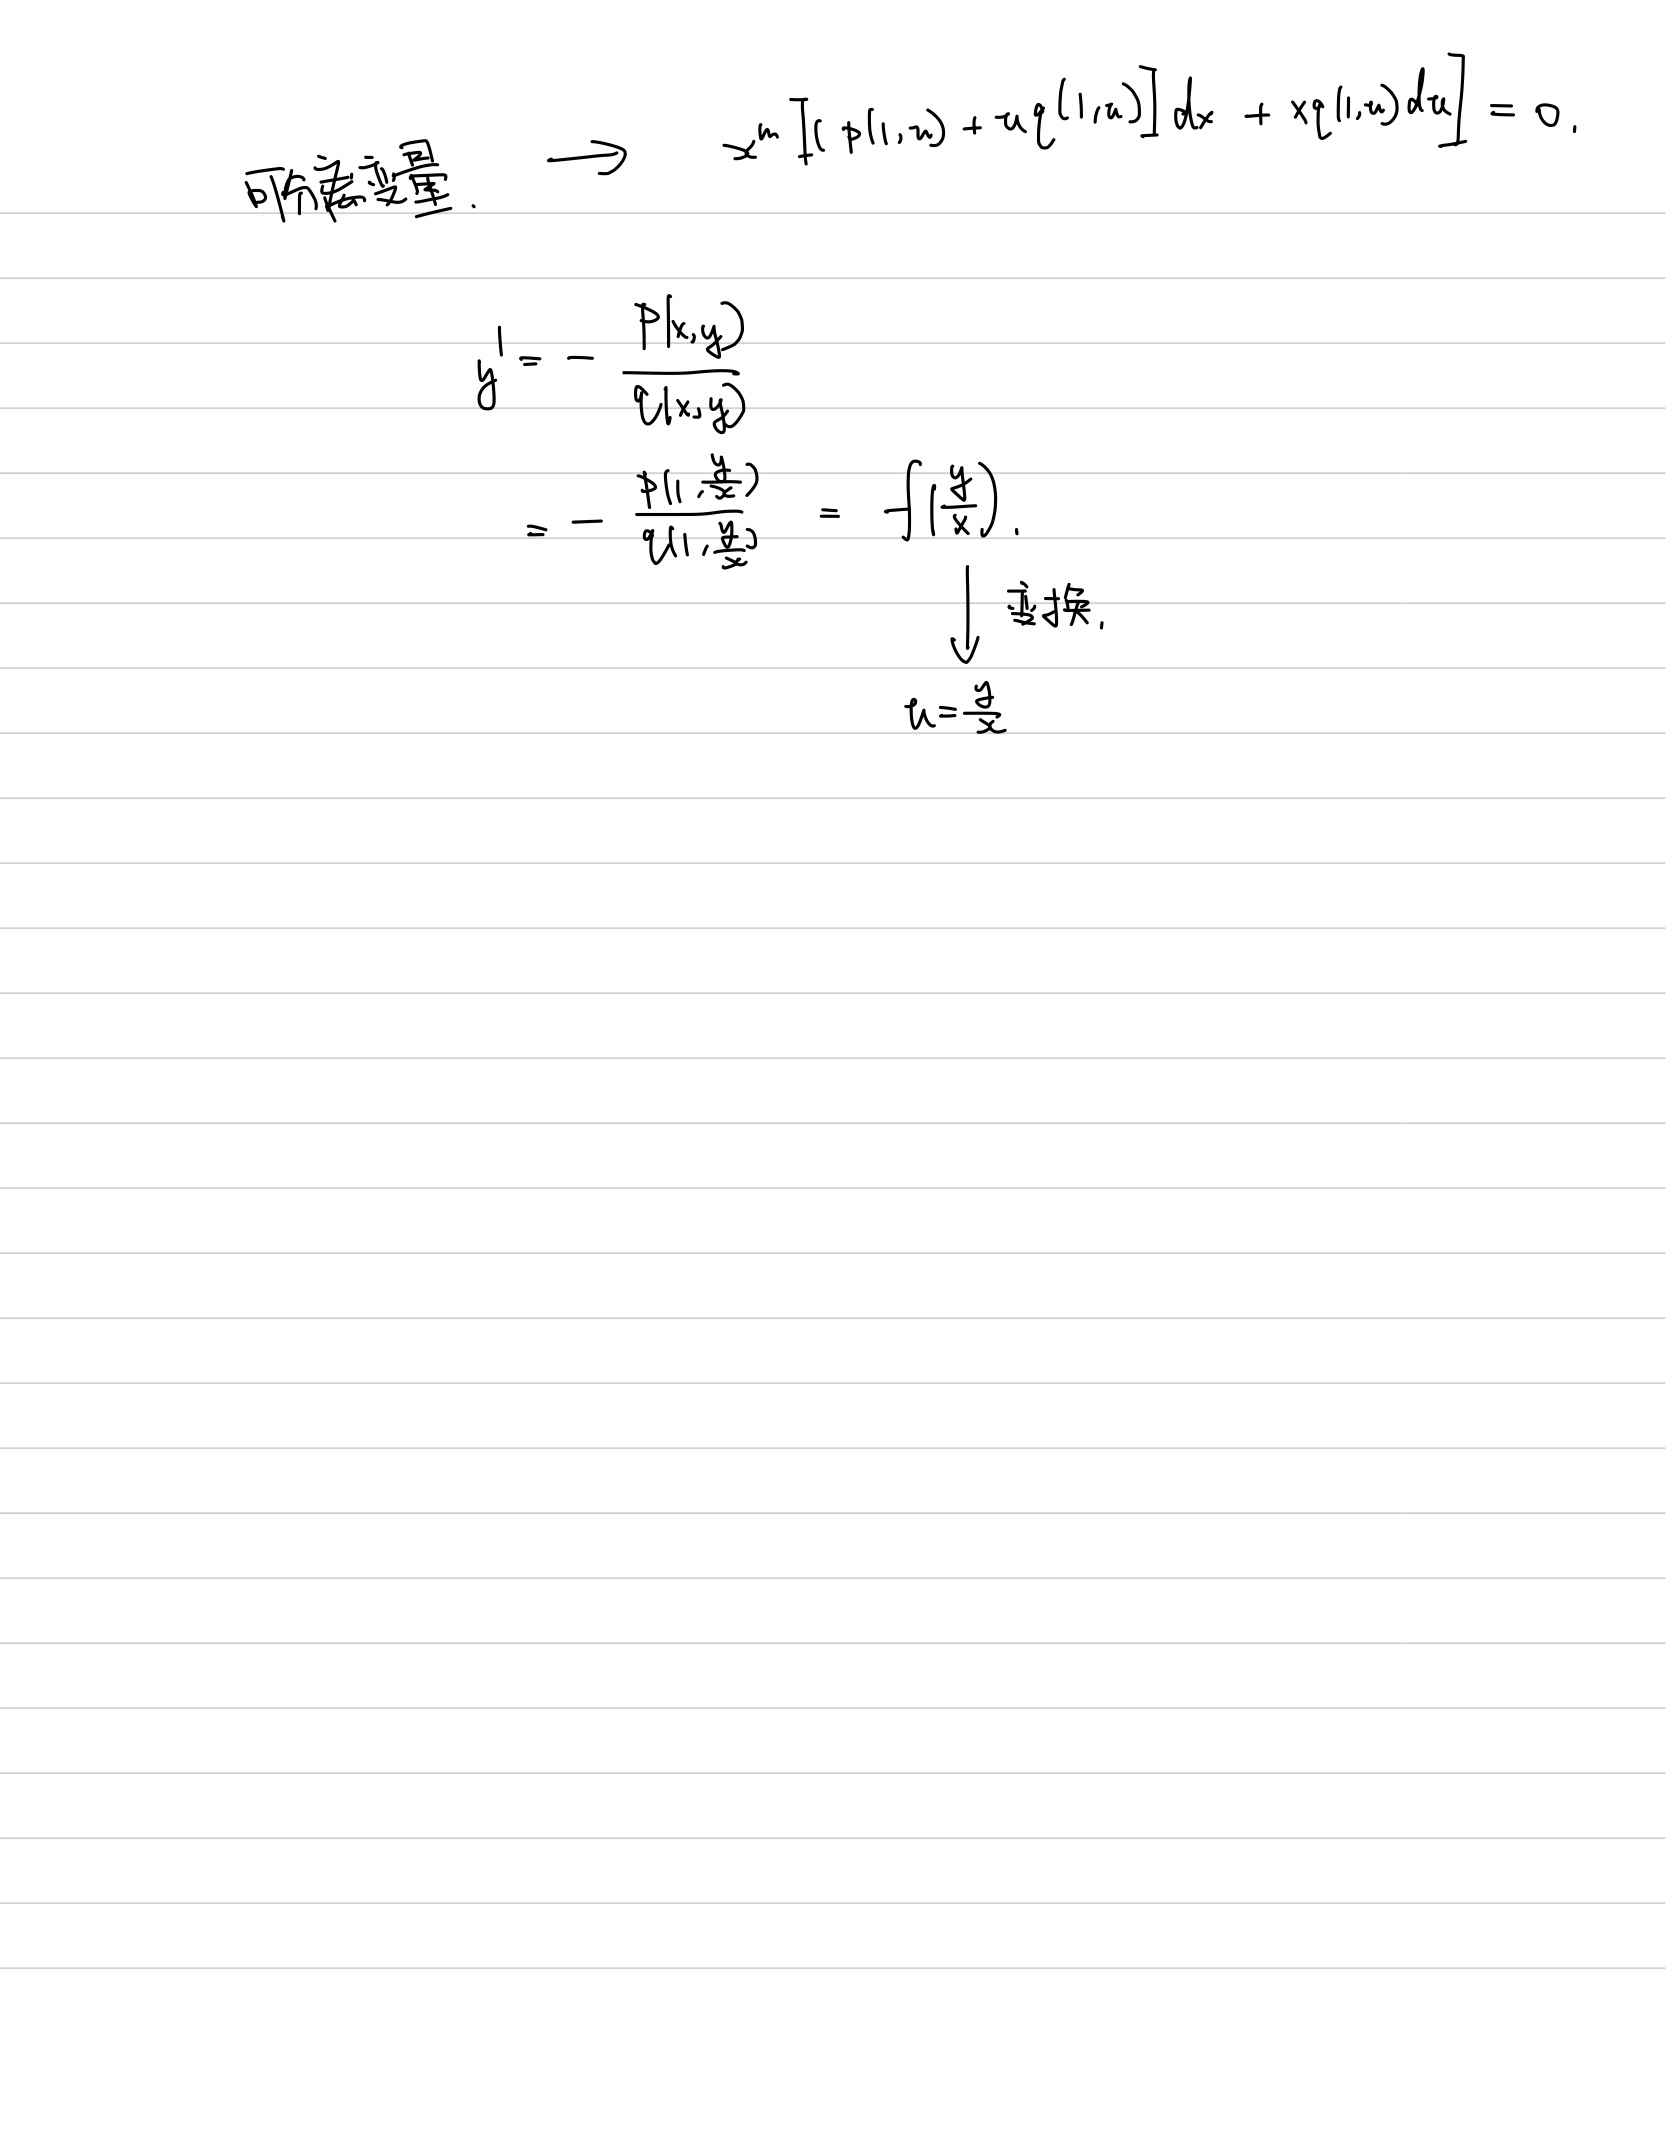 可分离变量. → x^m [(p(1,u) + uq(1,u)] dx + xq(1,u)du] = 0.
y' = - p(x,y) / q(x,y)
= - p(1, y/x) / q(1, y/x) = f(y/x).
↓ 变换.
u = y/x